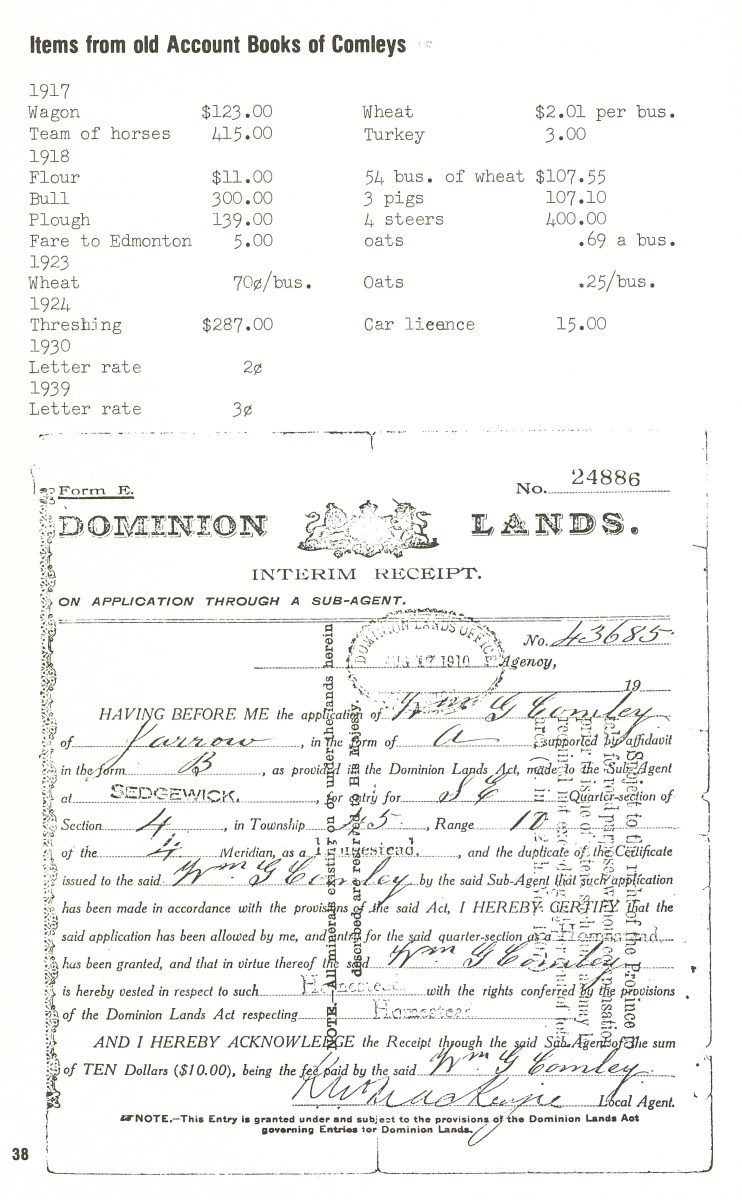 Items from old Account Books of Comleys
1917
Wagon $123.00 Wheat $2.01 per bus.
Team of horses 415.00 Turkey 3.00
1918
Flour $11.00 54 bus. of wheat $107.55
Bull 300.00 3 pigs 107.10
Plough 139.00 4 steers 400.00
Fare to Edmonton 5.00 oats .69 a bus.
1923
Wheat 70¢/bus. Oats .25/bus.
1924
Threshing $287.00 Car licence 15.00
1930
Letter rate 2¢
1939
Letter rate 3¢
Form E. No. 24886
DOMINION LANDS.
INTERIM RECEIPT.
ON APPLICATION THROUGH A SUB-AGENT.
DOMINION LANDS OFFICE
AUG 17 1910
No. 43685
Agency,
19
HAVING BEFORE ME the application of Wm G Comley
of Jarrow, in the form of A, supported by affidavit
in the form B, as provided in the Dominion Lands Act, made to the Sub-Agent
at SEDGEWICK., for entry for SE Quarter-section of
Section 4, in Township 45, Range 10
of the 4 Meridian, as a Homestead, and the duplicate of the Certificate
issued to the said Wm G Comley by the said Sub-Agent that such application
has been made in accordance with the provisions of the said Act, I HEREBY CERTIFY that the
said application has been allowed by me, and entry for the said quarter-section as a Homestead
has been granted, and that in virtue thereof the said Wm G Comley
is hereby vested in respect to such Homestead with the rights conferred by the provisions
of the Dominion Lands Act respecting Homestead
AND I HEREBY ACKNOWLEDGE the Receipt through the said Sub-Agent of the sum
of TEN Dollars ($10.00), being the fee paid by the said Wm G Comley
Local Agent.
NOTE.—This Entry is granted under and subject to the provisions of the Dominion Lands Act
governing Entries for Dominion Lands.
NOTE.—All minerals existing on or under the lands herein
described, are reserved to His Majesty.
Subject to the right of the Province
38